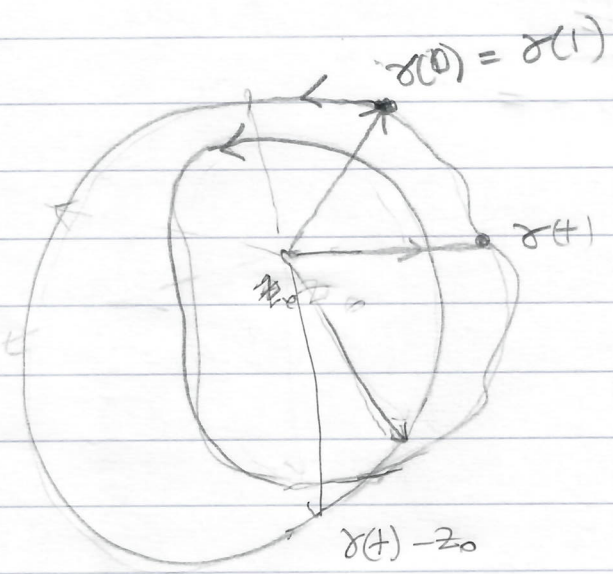 γ(0) = γ(1)
γ(t)
z₀
γ(t) - z₀